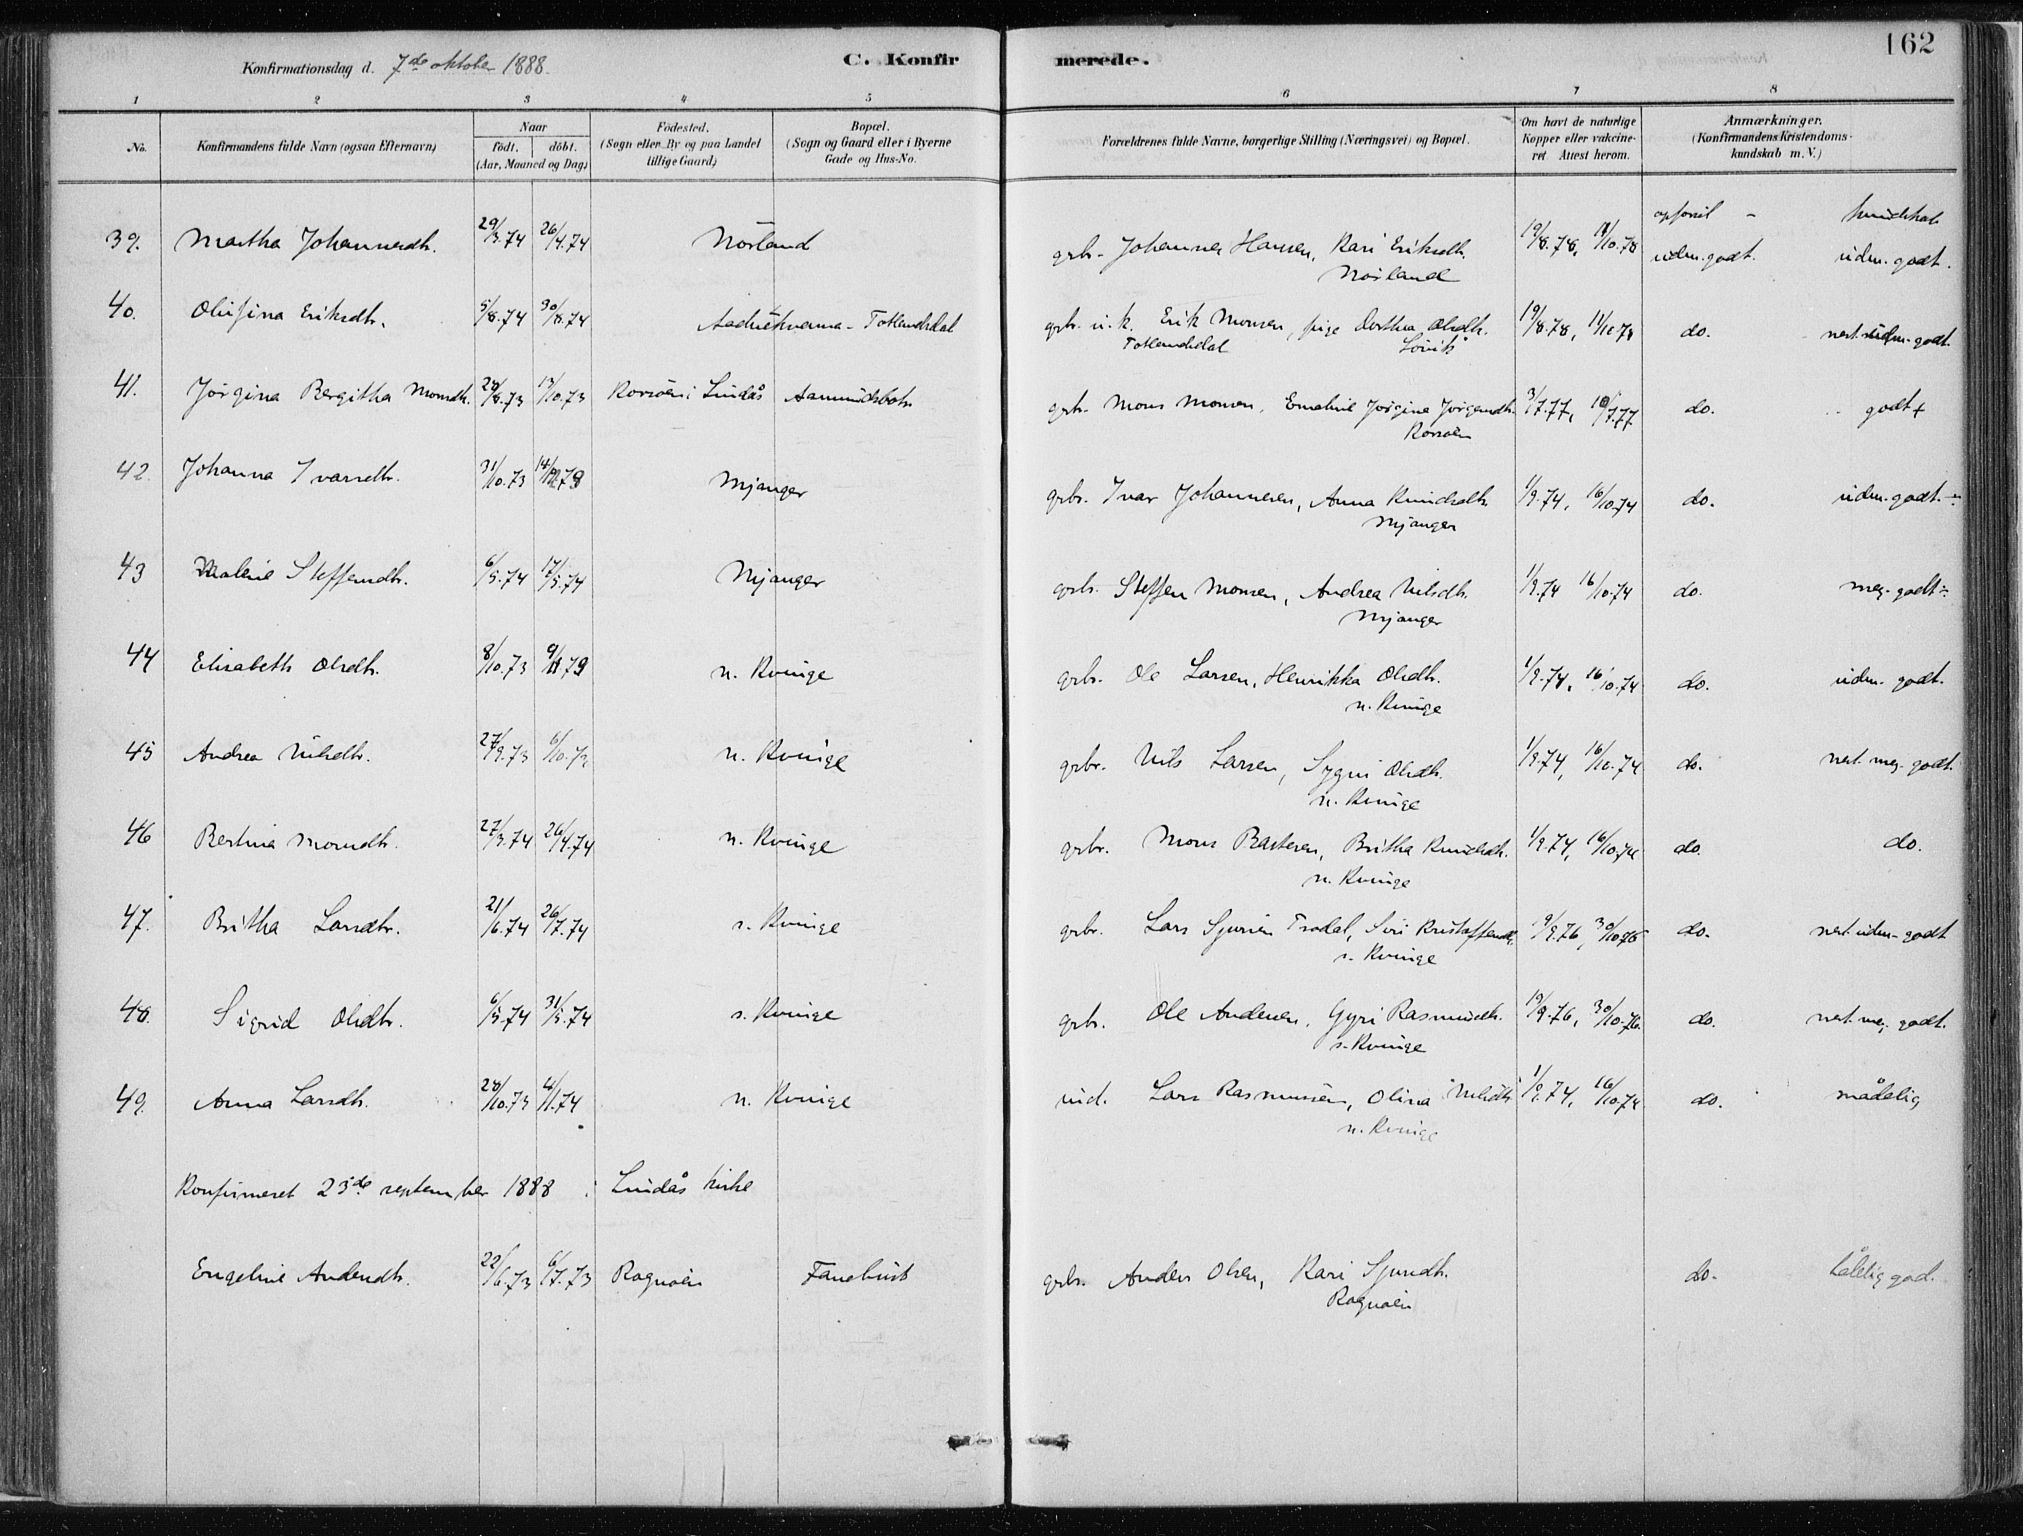 162
Konfirmationsdag d. 7de oktober 1888.
C. Konfir merede.
1 2 3 4 5 6 7 8
No.
Konfirmandens fulde Navn (ogsaa Efternavn)
Naar
født. døbt.
(Aar, Maaned og Dag)
Fødested.
(Sogn eller By og paa Landet
tillige Gaard)
Bopæl.
(Sogn og Gaard eller i Byerne
Gade og Hus-No.
Forældrenes fulde Navne, borgerlige Stilling (Næringsvei) og Bopæl.
Om havt de naturlige
Kopper eller vakcine-
ret Attest herom.
Anmærkninger.
(Konfirmandens Kristendoms-
kundskab m. V.)
opførsil - kundskab
39. Martha Johannesdtr. 29/3.74 26/4.74 Nörland grbr. Johannes Hansen, Kari Eriksdtr. 19/8.78, 11/10.78 udm. godt. udm. godt.
Nörland
40. Olufina Eriksdtr. 5/8.74 30/8.74 Totlandsdal grbr. u. k. Erik Monsen, pige Dorthea Olsdtr. 19/8.78, 11/10.78 do. nest. udm. godt.
Totlandsdal Lövik
41. Jörgina Bergitha Monsdtr. 28/8.73 13/10.73 Korsöen i Lindås Aamundsbotn grbr. Mons Monsen, Emeline Jörgina Jörgensdtr. 3/7.77, 10/7.77 do. godt +
Korsöen
42. Johanna Ivarsdtr. 31/10.73 14/12.73 Mjanger grbr. Ivar Johannesen, Anna Knudsdtr. 1/9.74, 16/10.74 do. udm. godt. ÷
Mjanger
43 Malene Steffensdtr. 6/5.74 17/5.74 Mjanger grbr. Steffen Monsen, Andrea Nilsdtr. 1/9.74 16/10.74 do. meg. godt ÷
Mjanger
44 Elisabeth Olsdtr. 8/10.73 9/11.73 n. Kvinge grbr. Ole Larsen, Henrikka Olsdtr. 1/9.74, 16/10.74 do. udm. godt.
n. Kvinge
45 Andrea Nilsdtr. 27/9.73 6/10.73 n. Kvinge grbr. Nils Larsen, Sygni Olsdtr. 1/9.74, 16/10.74 do. nest. meg. godt.
n. Kvinge
46 Bertina Monsdtr. 27/3.74 26/4.74 n. Kvinge grbr. Mons Bastesen, Britha Knudsdtr. 1/9.74, 16/10.74 do. do.
n. Kvinge
47. Britha Larsdtr. 21/6.74 26/7.74 s. Kvinge grbr. Lars Sjursen Trodal, Siri Kristoffersdtr. 19/9.76, 30/10.76 do. nest. udm. godt
s. Kvinge
48. Sigrid Olsdtr. 6/5.74 31/5.74 s. Kvinge grbr. Ole Andersen, Gyri Rasmusdtr. 19/9.76, 30/10.76. do. nest. meg. godt.
s. Kvinge
49. Anna Larsdtr. 28/10.73 4/1.74 n. Kvinge ind. Lars Rasmussen, Olina Nilsdtr. 1/9.74, 16/10.74 do. mådelig
n. Kvinge
Konfirmeret 23de september 1888 i Lindås kirke
Engeline Andersdtr. 22/6.73 6/7.73 Rognöen Fanebust grbr. Anders Olsen, Kari Sjursdtr. do. tålelig god.
Rognöen